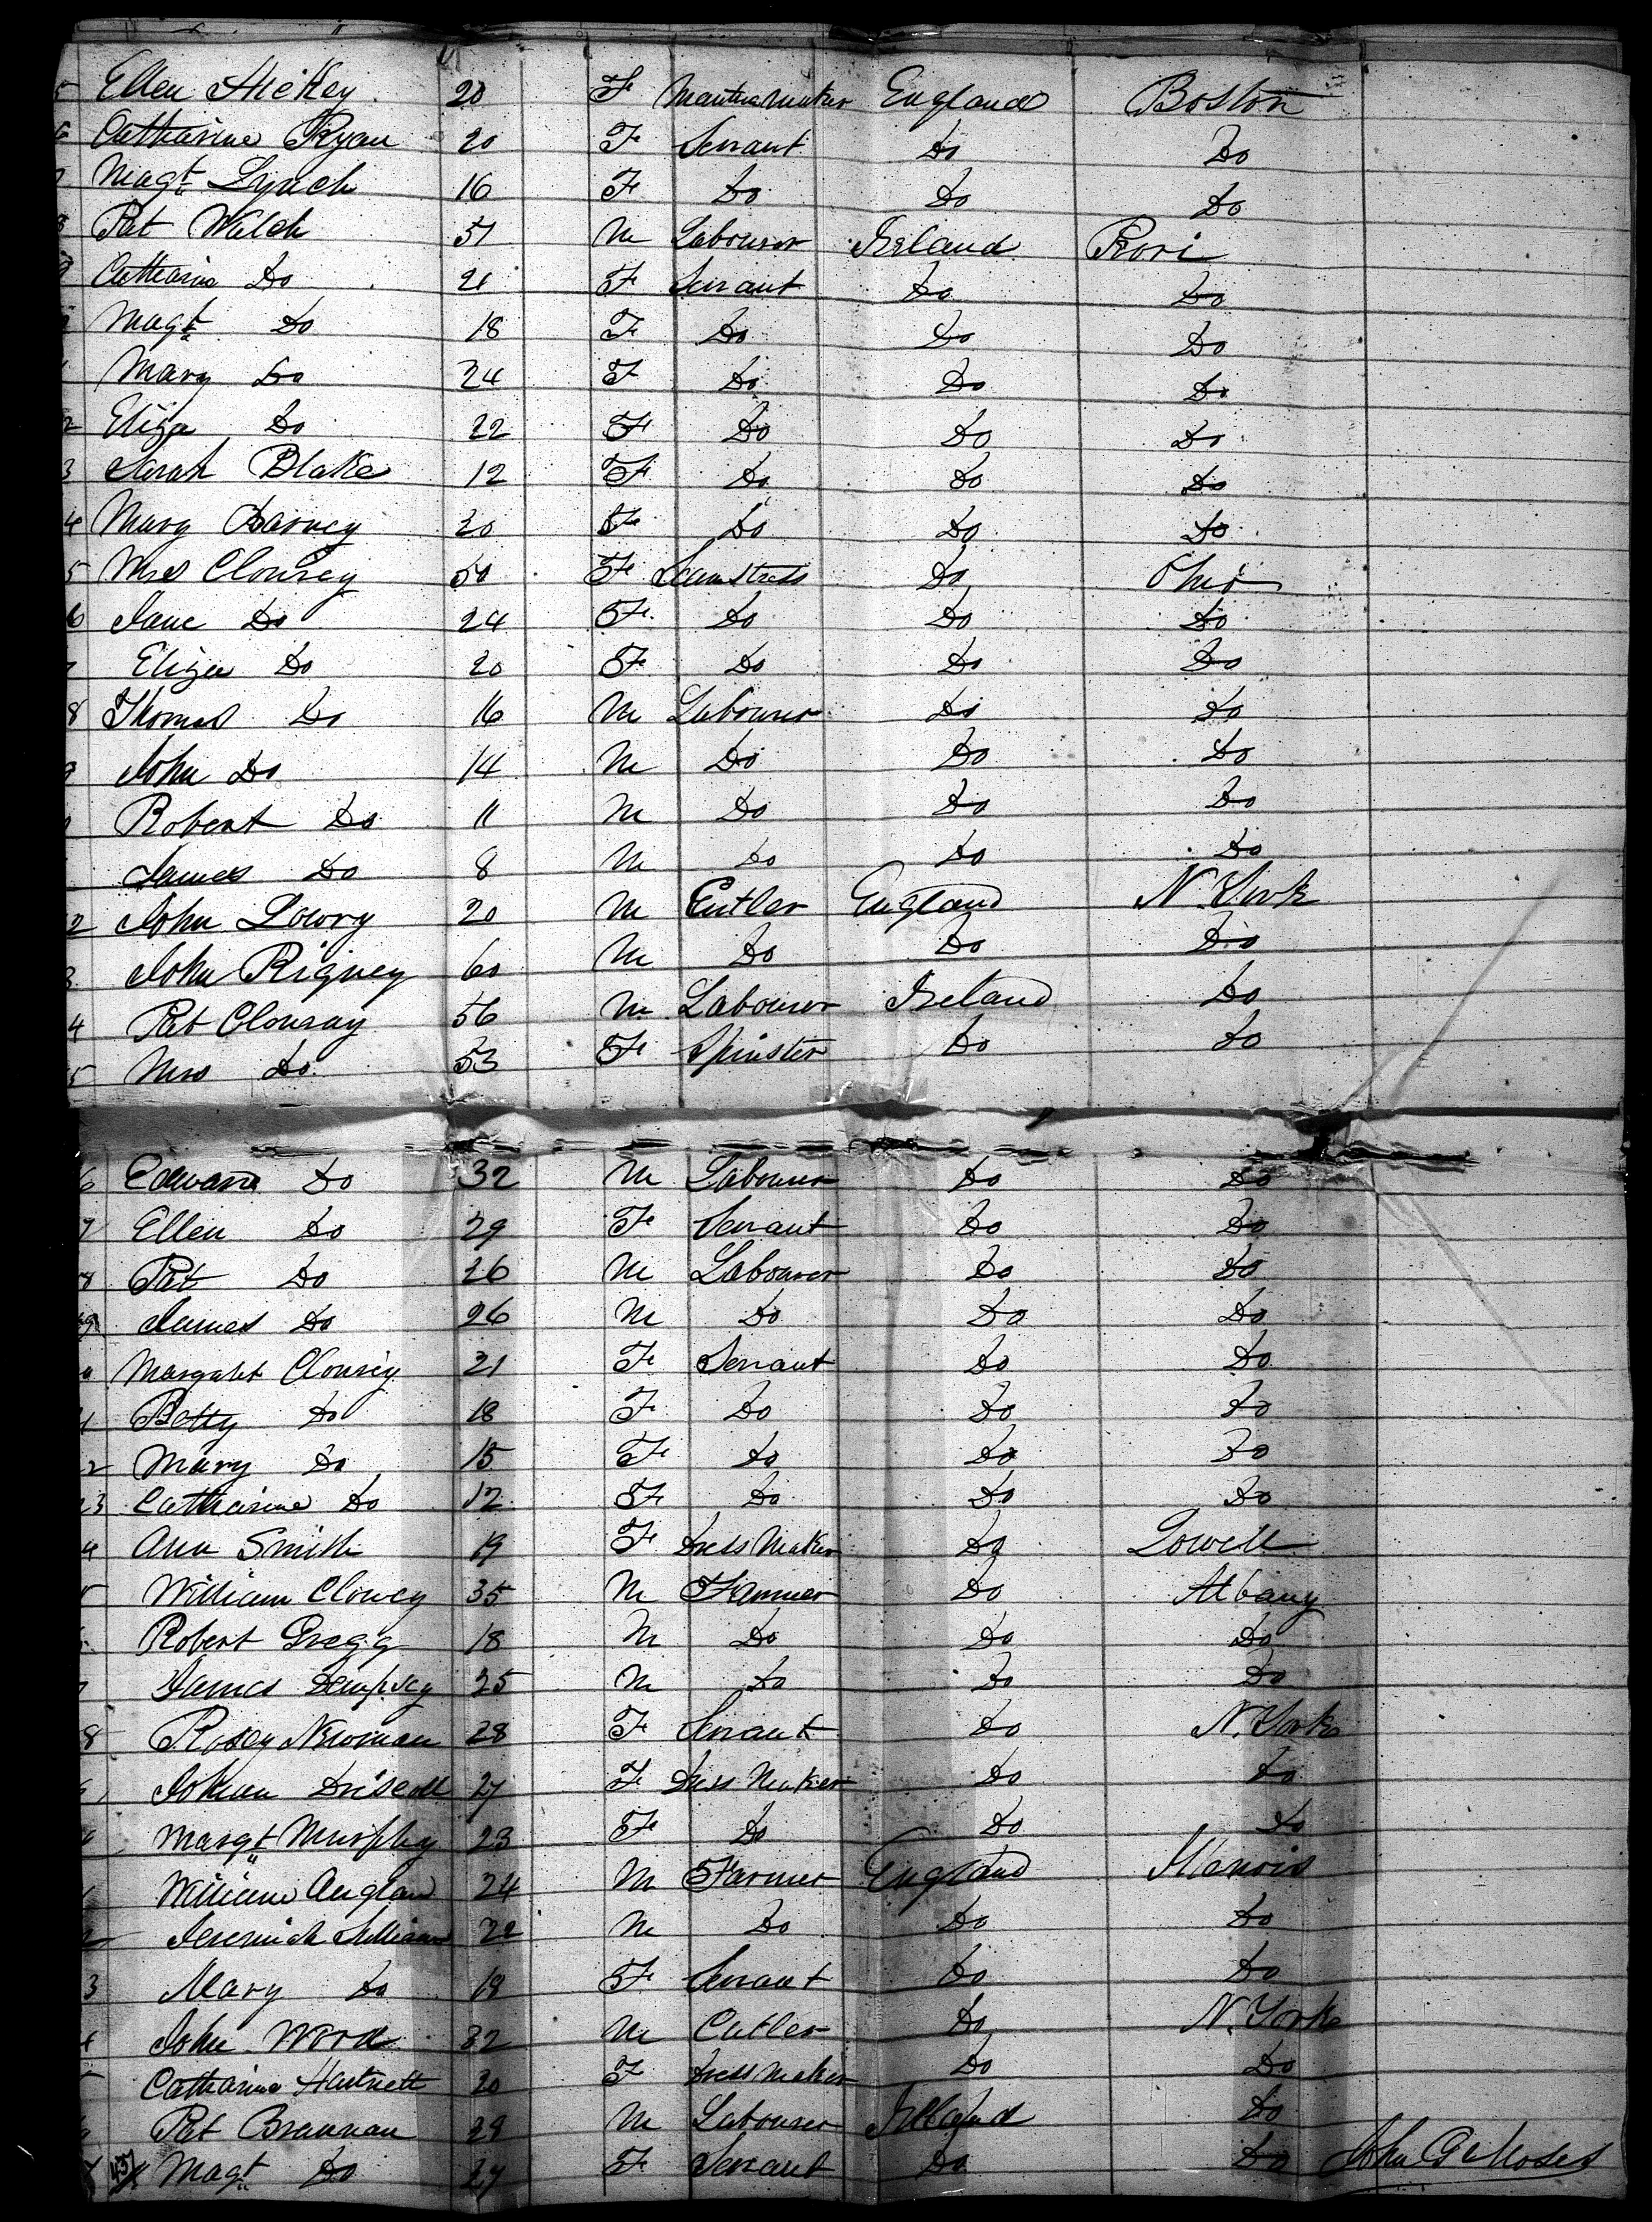 5 Ellen Hickey 20 F Mantua Maker England Boston
6 Catharine Ryan 20 F Servant Do Do
Magt Lynch 16 F Do Do Do
8 Pat Welch 51 M Labourer Ireland Provi
9 Catharine Do 21 F Servant Do Do
Magt Do 18 F Do Do Do
Mary Do 24 F Do Do Do
2 Eliza Do 22 F Do Do Do
3 Sarah Blake 12 F Do Do Do
4 Mary Do 20 F Do Do Do
5 Mrs Clousey 50 F Seamstress Do Ohio
6 Jane Do 24 F Do Do Do
7 Eliza Do 20 F Do Do Do
8 Thomas Do 16 M Labourer Do Do
9 John Do 14 M Do Do Do
Robert Do 11 M Do Do Do
James Do 8 M Do Do Do
2 John Lowry 20 M Cutler England N. York
3 John Rigney 60 M Do Do Do
4 Pat Clousay 56 M Labourer Ireland Do
5 Mrs Do 53 F Spinster Do Do
6 Edward Do 32 M Labourer Do Do
7 Ellen Do 29 F Servant Do Do
8 Pat Do 26 M Labourer Do Do
9 James Do 26 M Do Do Do
Margaret Clousey 21 F Servant Do Do
1 Betty Do 18 F Do Do Do
2 Mary Do 15 F Do Do Do
3 Catharine Do 12 F Do Do Do
4 Ann Smith 19 F Dress Maker Do Lowell
William Cloucy 35 M Farmer Do Albany
Robert Gregg 18 M Do Do Do
James Dempsey 25 M Do Do Do
8 Rosey Newman 28 F Servant Do N. York
Johan Driscoll 27 F Dress Maker Do Do
Margt Murphy 23 F Do Do Do
William Anglan 24 M Farmer England Illenois
Jeremiah 22 M Do Do Do
3 Mary Do 18 F Servant Do Do
4 John Wood 32 M Cutler Do N. York
Catharine Hartnett 20 F Dress Maker Do Do
Pat Brannan 28 M Labourer Ireland Do
7 Magt Do 27 F Servant Do Do John G Moses